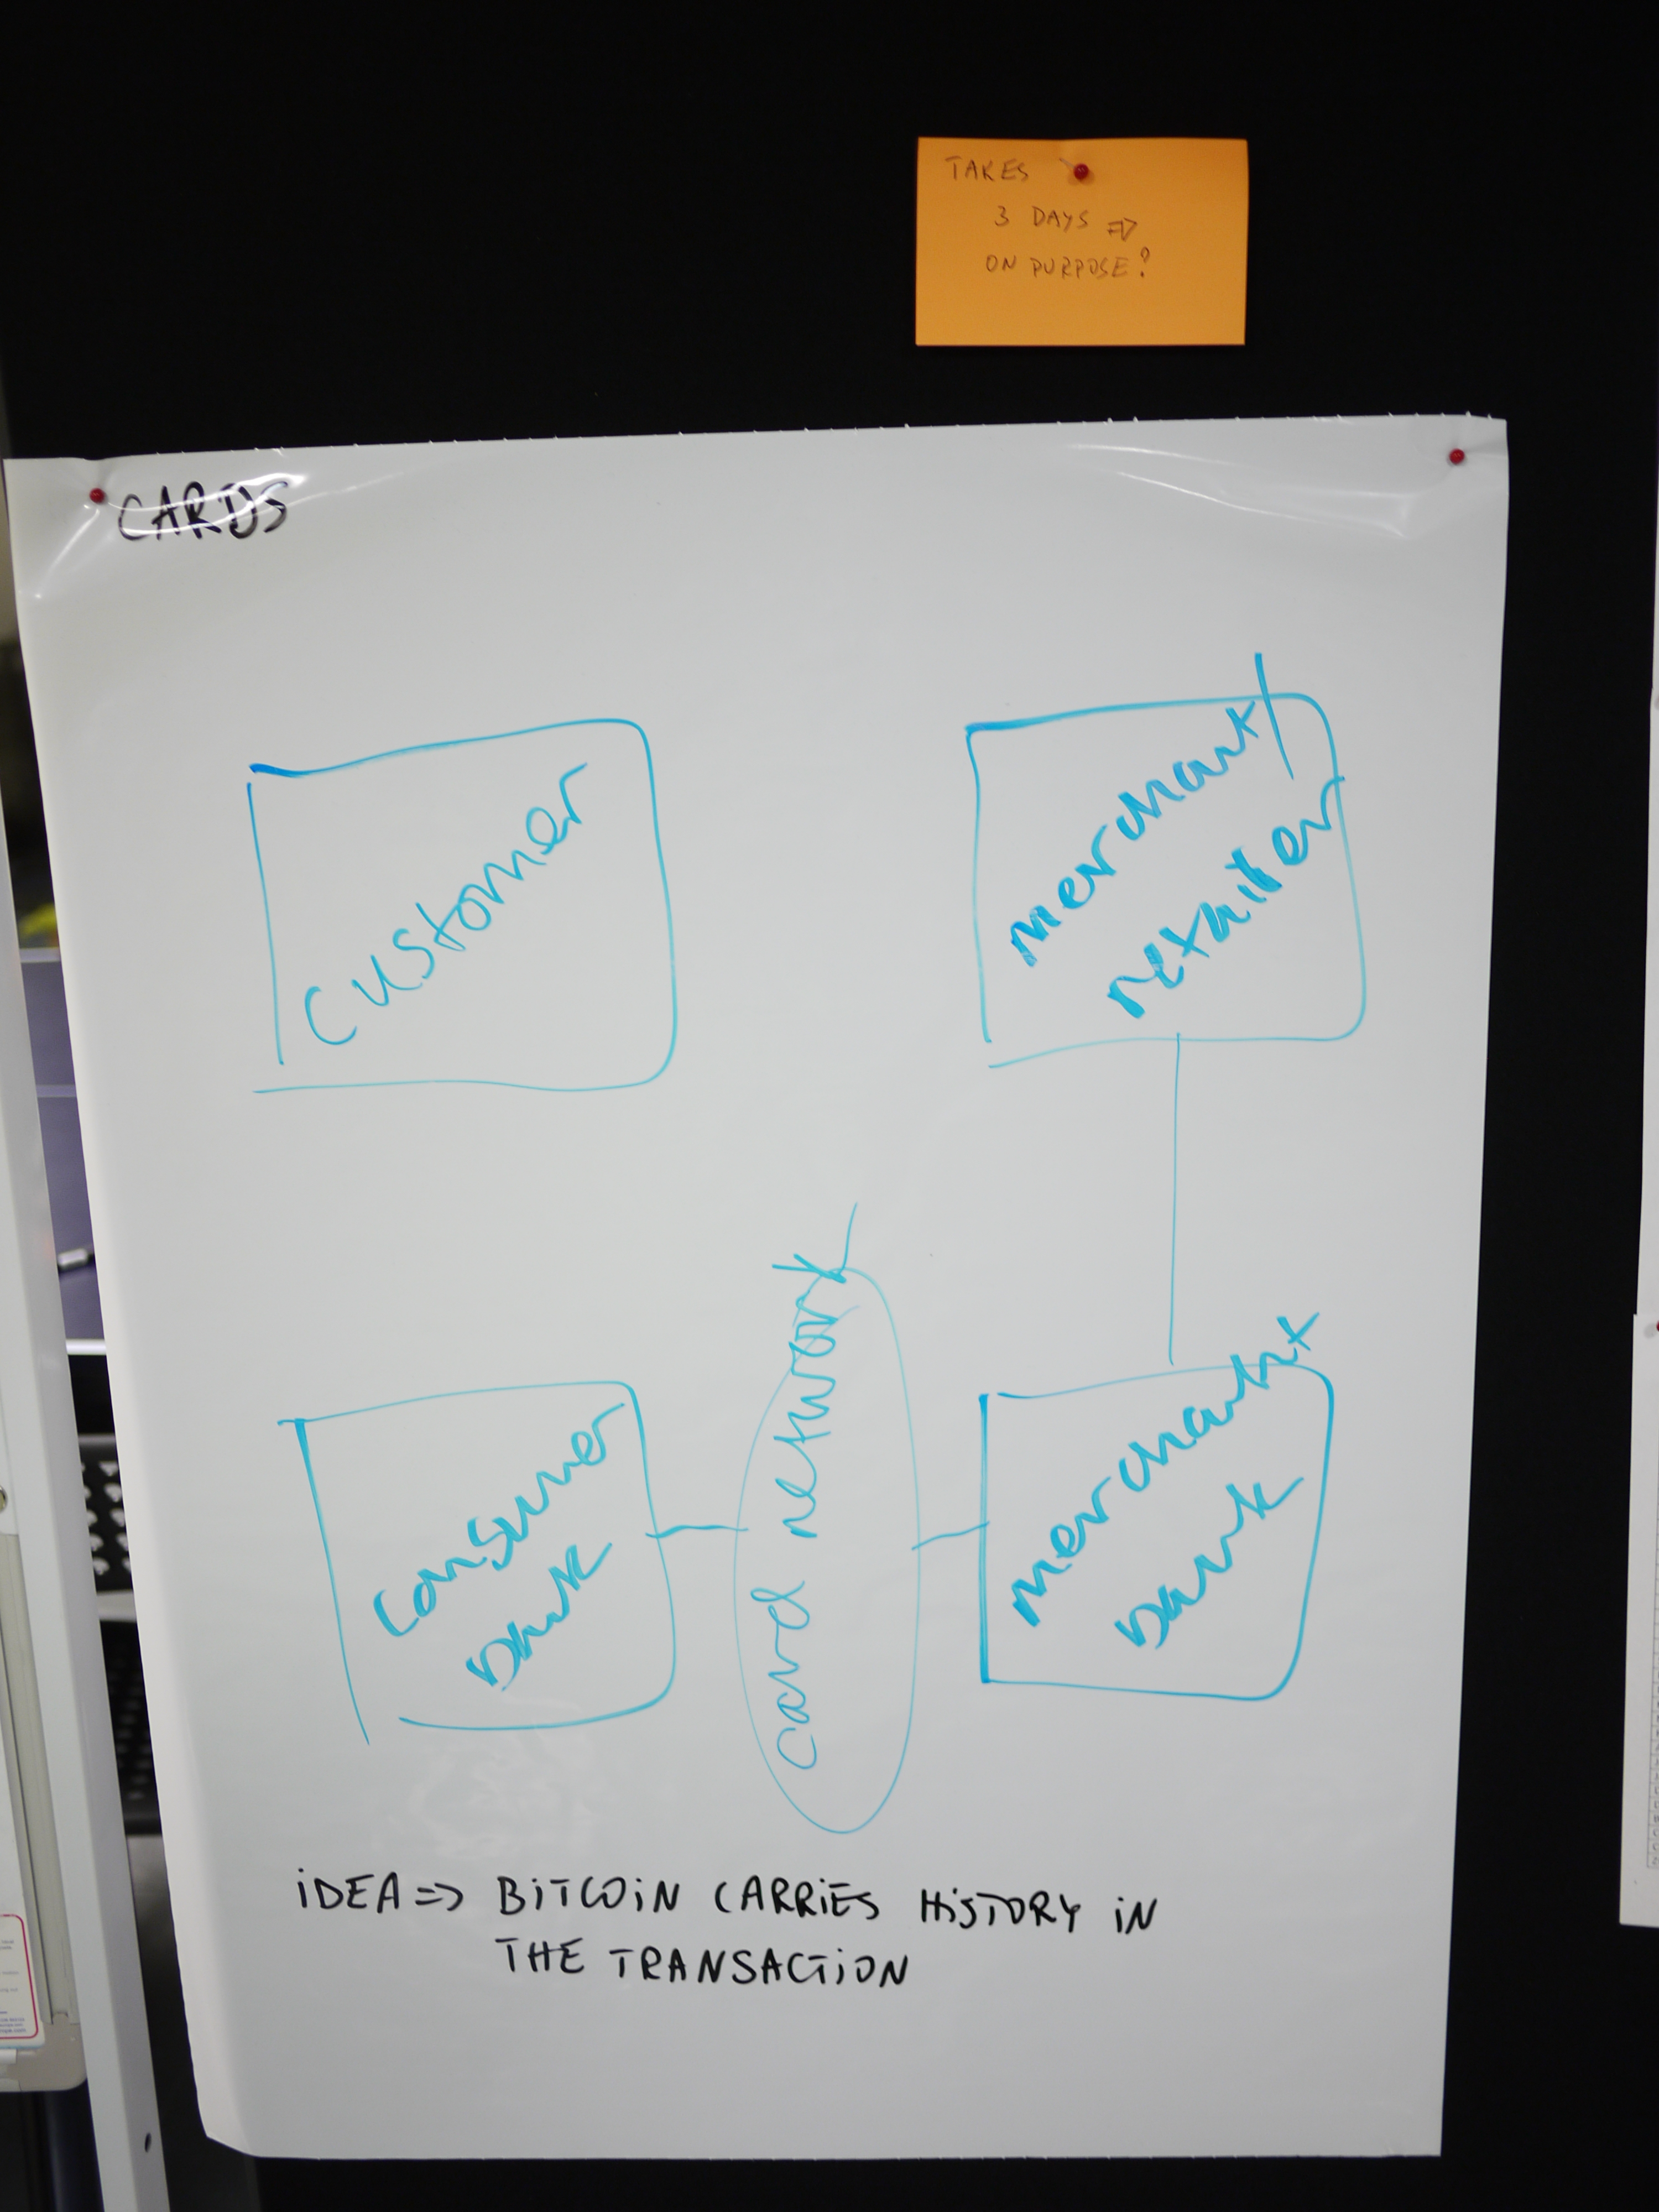 TAKES
3 DAYS ⇒
ON PURPOSE?
CARDS
Customer
merchant/
retailer
Consumer
Bank
card network
merchant
Bank
iDEA => BiTCOiN CARRiES HiSTORY iN
THE TRANSACTiON